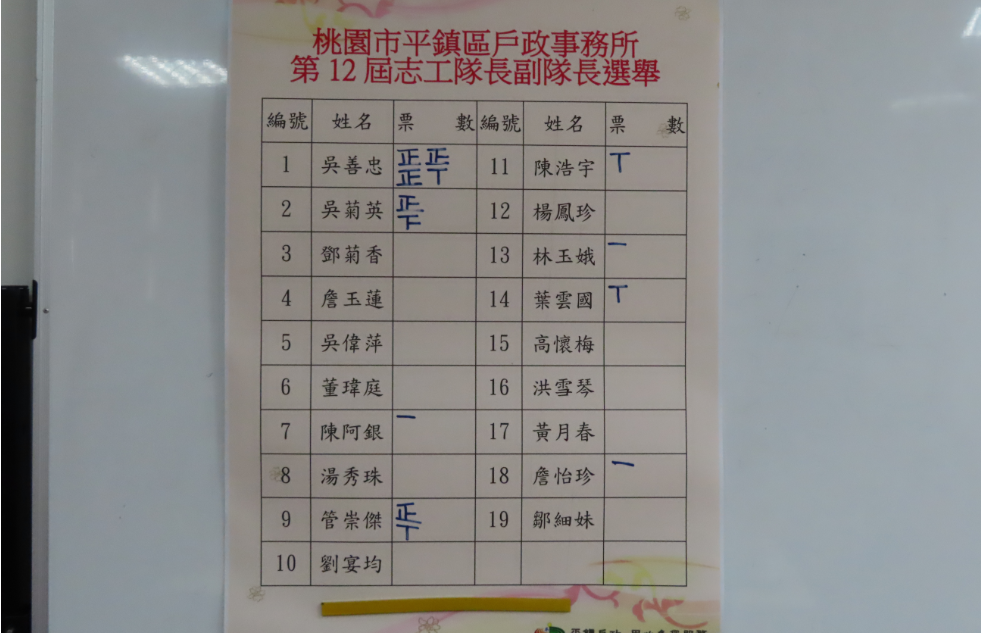 桃園市平鎮區戶政事務所
第12屆志工隊長副隊長選舉
編號 姓名 票數 編號 姓名 票數
1 吳善忠 正正正丅 11 陳浩宇 丅
2 吳菊英 正下 12 楊鳳珍
3 鄧菊香 13 林玉娥 一
4 詹玉蓮 14 葉雲國 丅
5 吳偉萍 15 高懷梅
6 董瑋庭 16 洪雪琴
7 陳阿銀 一 17 黃月春
8 湯秀珠 18 詹怡珍 一
9 管崇傑 正丅 19 鄒細妹
10 劉宴均